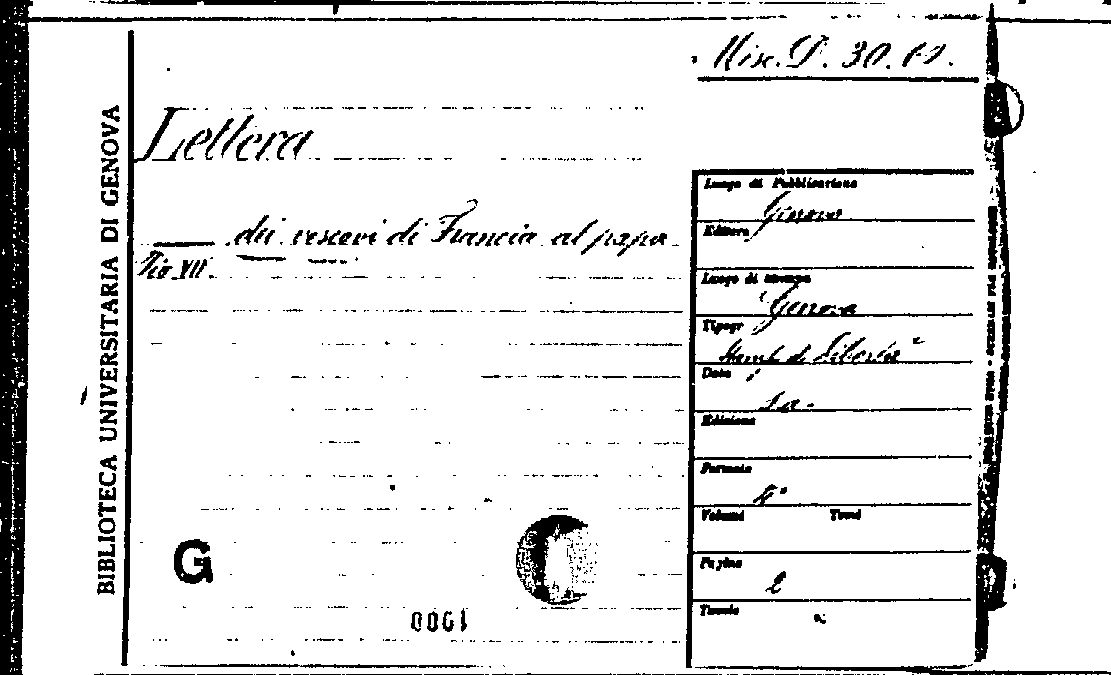 Misc. D. 30.
Lettera
dei vescovi di Francia al papa
Pio VII.
BIBLIOTECA UNIVERSITARIA DI GENOVA
Luogo di Pubblicazione
Genova
Editore
Luogo di stampa
Genova
Tipogr
Stamp. di Libertà
Data
s.a.
Edizione
Formato
4°
Volumi Tomi
Pagine
2
Tavole
G